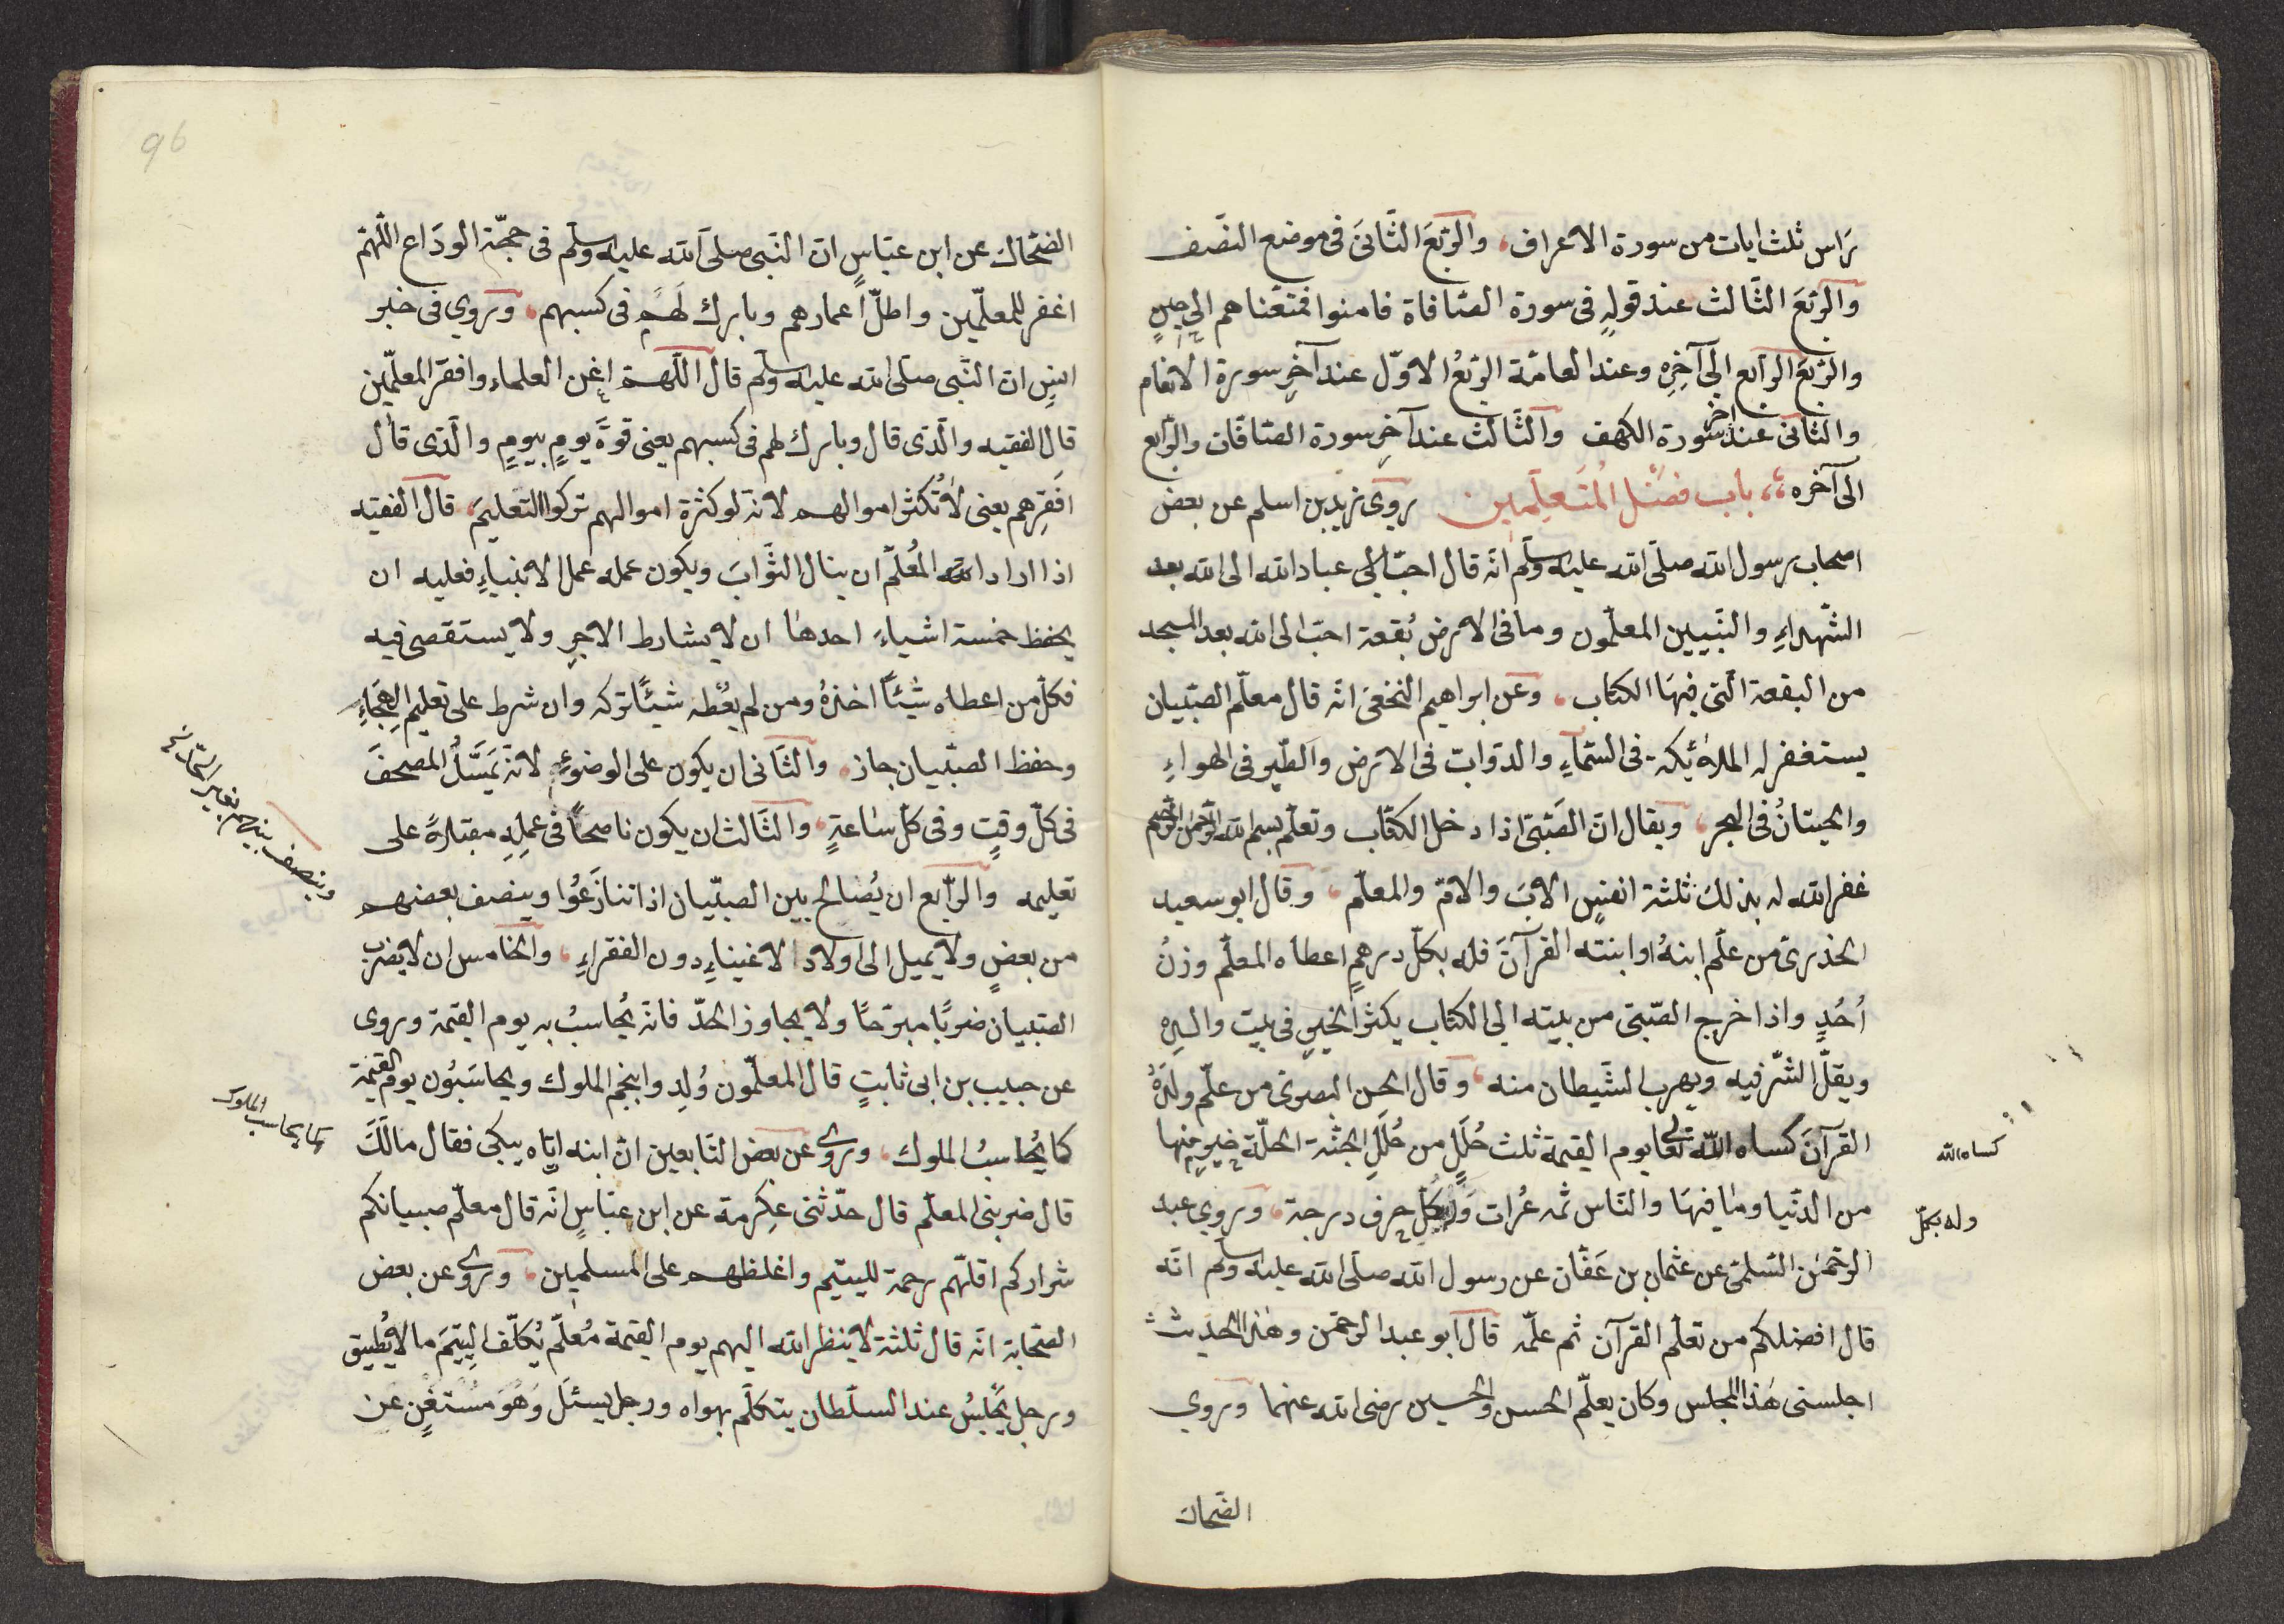 رَاس ثلث ايات من سورة الاعراف، والرّبعَ الثّانىَ فى موضع النّصف
والرّبعَ الثّالث عند قولهِ فى سورة الصّافاة فامنوا فمتعناهم الى حينٍ
والرّبعَ الرّابع الى آخِرِه وعند العامّة الرّبعُ الاوّل عند آخِرِ سورة الانعام
والثّانى عند آخر سورة الكهف والثّالث عند آخرِ سورة الصّافّات والرّابع
الى آخره، باب فضل المتعلّمين روى زيد بن اسلم عن بعض
اصحاب رسول الله صلّى الله عليه وسلّم انّه قال احبّ الى عباد الله الى الله بعد
الشّهداءِ والنّبيين المعلّمون وما فى الارض بُقعة احبّ الى الله بعد المسجد
من البقعة الّتى فيهَا الكتاب، وعن ابراهيم النخعىّ انّه قال معلّم الصّبيان
يستغفر له الملائكة فى السّمآءِ والدّوابّ فى الارض والطّير فى الهواءِ
والحيتانُ فى البحر، ويقال انّ الصّبىّ اذا دخل الكتّاب وتعلّم بسم الله الرّحمن الرّحيم
غفر الله له بذلك ثلثة انفسٍ الابَ والامّ والمعلّم، وقال ابو سعيد
الخذرىّ من علّم ابنهُ او ابنته القرآنَ فله بكلّ درهمٍ اعطاه المعلّم وزنُ
اُحُدٍ واذا خرج الصّبىّ من بيته الى الكتاب يكثر الخير فى بيت والديه
ويقلّ الشّر فيه ويهرب الشّيطان منه، وقال الحسن البصرىّ من علّم ولدهُ
القرآنَ كساه الله تعالى يوم القيمة ثلث حُلَلٍ من حُلَلِ الجنّة الحلّة خير منها
من الدّنيا وما فيهَا والنّاس ثمه عُرات وَله بكُلّ حرف درجة، وروى عبد
الرّحمٰن السّلمىّ عن عثمان بن عَفّان عن رسول الله صلّى الله عليه وسلّم انّه
قال افضلكم من تعلّم القرآن ثم علّمه قال ابو عبد الرحمٰن وهٰذا الحديث
اجلسنى هٰذا المجلس وكان يعلّم الحسن والحسين رضى الله عنهما وروى
الضّحاك
كساه الله
وله بكلّ
96
الضّحاك عن ابن عبّاسٍ انّ النّبى صلّى الله عليه وسلّم فى حجّة الودَاع اللّهمّ
اغفر للمعلّمين واطلّ اعمارهم وبارك لَهم فى كسبهم، وروى فى خبر
انسٍ انّ النّبى صلّى الله عليه وسلّم قال اللّهمّ اغن العلماء وافقر المعلّمين
قال الفقيه والّذى قال وبارك لهم فى كسبهم يعنى قوةَ يومٍ بيومٍ والّذى قال
افَقِرهم يعنى لا تُكثر اموالهم لانه لو كثرة اموالهم تركوا التعليمَ، قال الفقيه
اذا اراد المُعلّم ان ينال الثّوابَ ويكون عمله عمل الانبياءِ فعليه ان
يحفظ خمسة اشياءَ احدهٰا ان لا يشارط الاجرِ ولا يستقصى فيه
فكلّ من اعطاه شيئاً اخذهُ ومن لم يعُطه شيئًا تركه وان شرط على تعليم الهِجَاءِ
وحفظ الصّبيان جاز، والثّانى ان يكون على الوضوءِ لانّه يَمسّ المصحفَ
فى كلّ وقتٍ وفى كلّ سٰاعةٍ، والثّالث ان يكون ناصحاً فى عملِهِ مقبلاً على
تعليمه والرّابع ان يُصالح بين الصبّيان اذا تنازَعُوا وينصف بعضهم
من بعضٍ ولا يميل الى اولاد الاغنياءِ دون الفقراءِ، والخامس ان لا يضرب
الصّبيان ضربًا مبرّحًا ولا يجاوز الحدّ فانّه يُحاسبُ به يوم القيمة وروى
عن حبيب بن ابى ثابتٍ قال المعلّمون وُلِدوا بنجم الملوك ويحاسَبُون يوم القيمة
كما يُحاسبُ الملوك، وروى عن بعض التّابعين انّ ابنه اتاه يبكى فقال مالَكَ
قال ضربنى المعلّم قال حدّثنى عِكرمة عن ابن عبّاسٍ انّه قال معلّم صبيانكم
شراركم اقلّهم رحمة لليتيم واغلظهم على المسلمين، وروى عن بعض
الصّحابة انّه قال ثلثة لا ينظر الله اليهم يوم القيمة مُعلّم يُكلّف اليتيَم ما لا يُطيق
ورجل يُجلسُ عند السلّطان يتكلّم بهواه ورجل يسئلَ وَهُوَ مُستغنٍ عن
وينصف بينهم
كما يحاسب الملوك